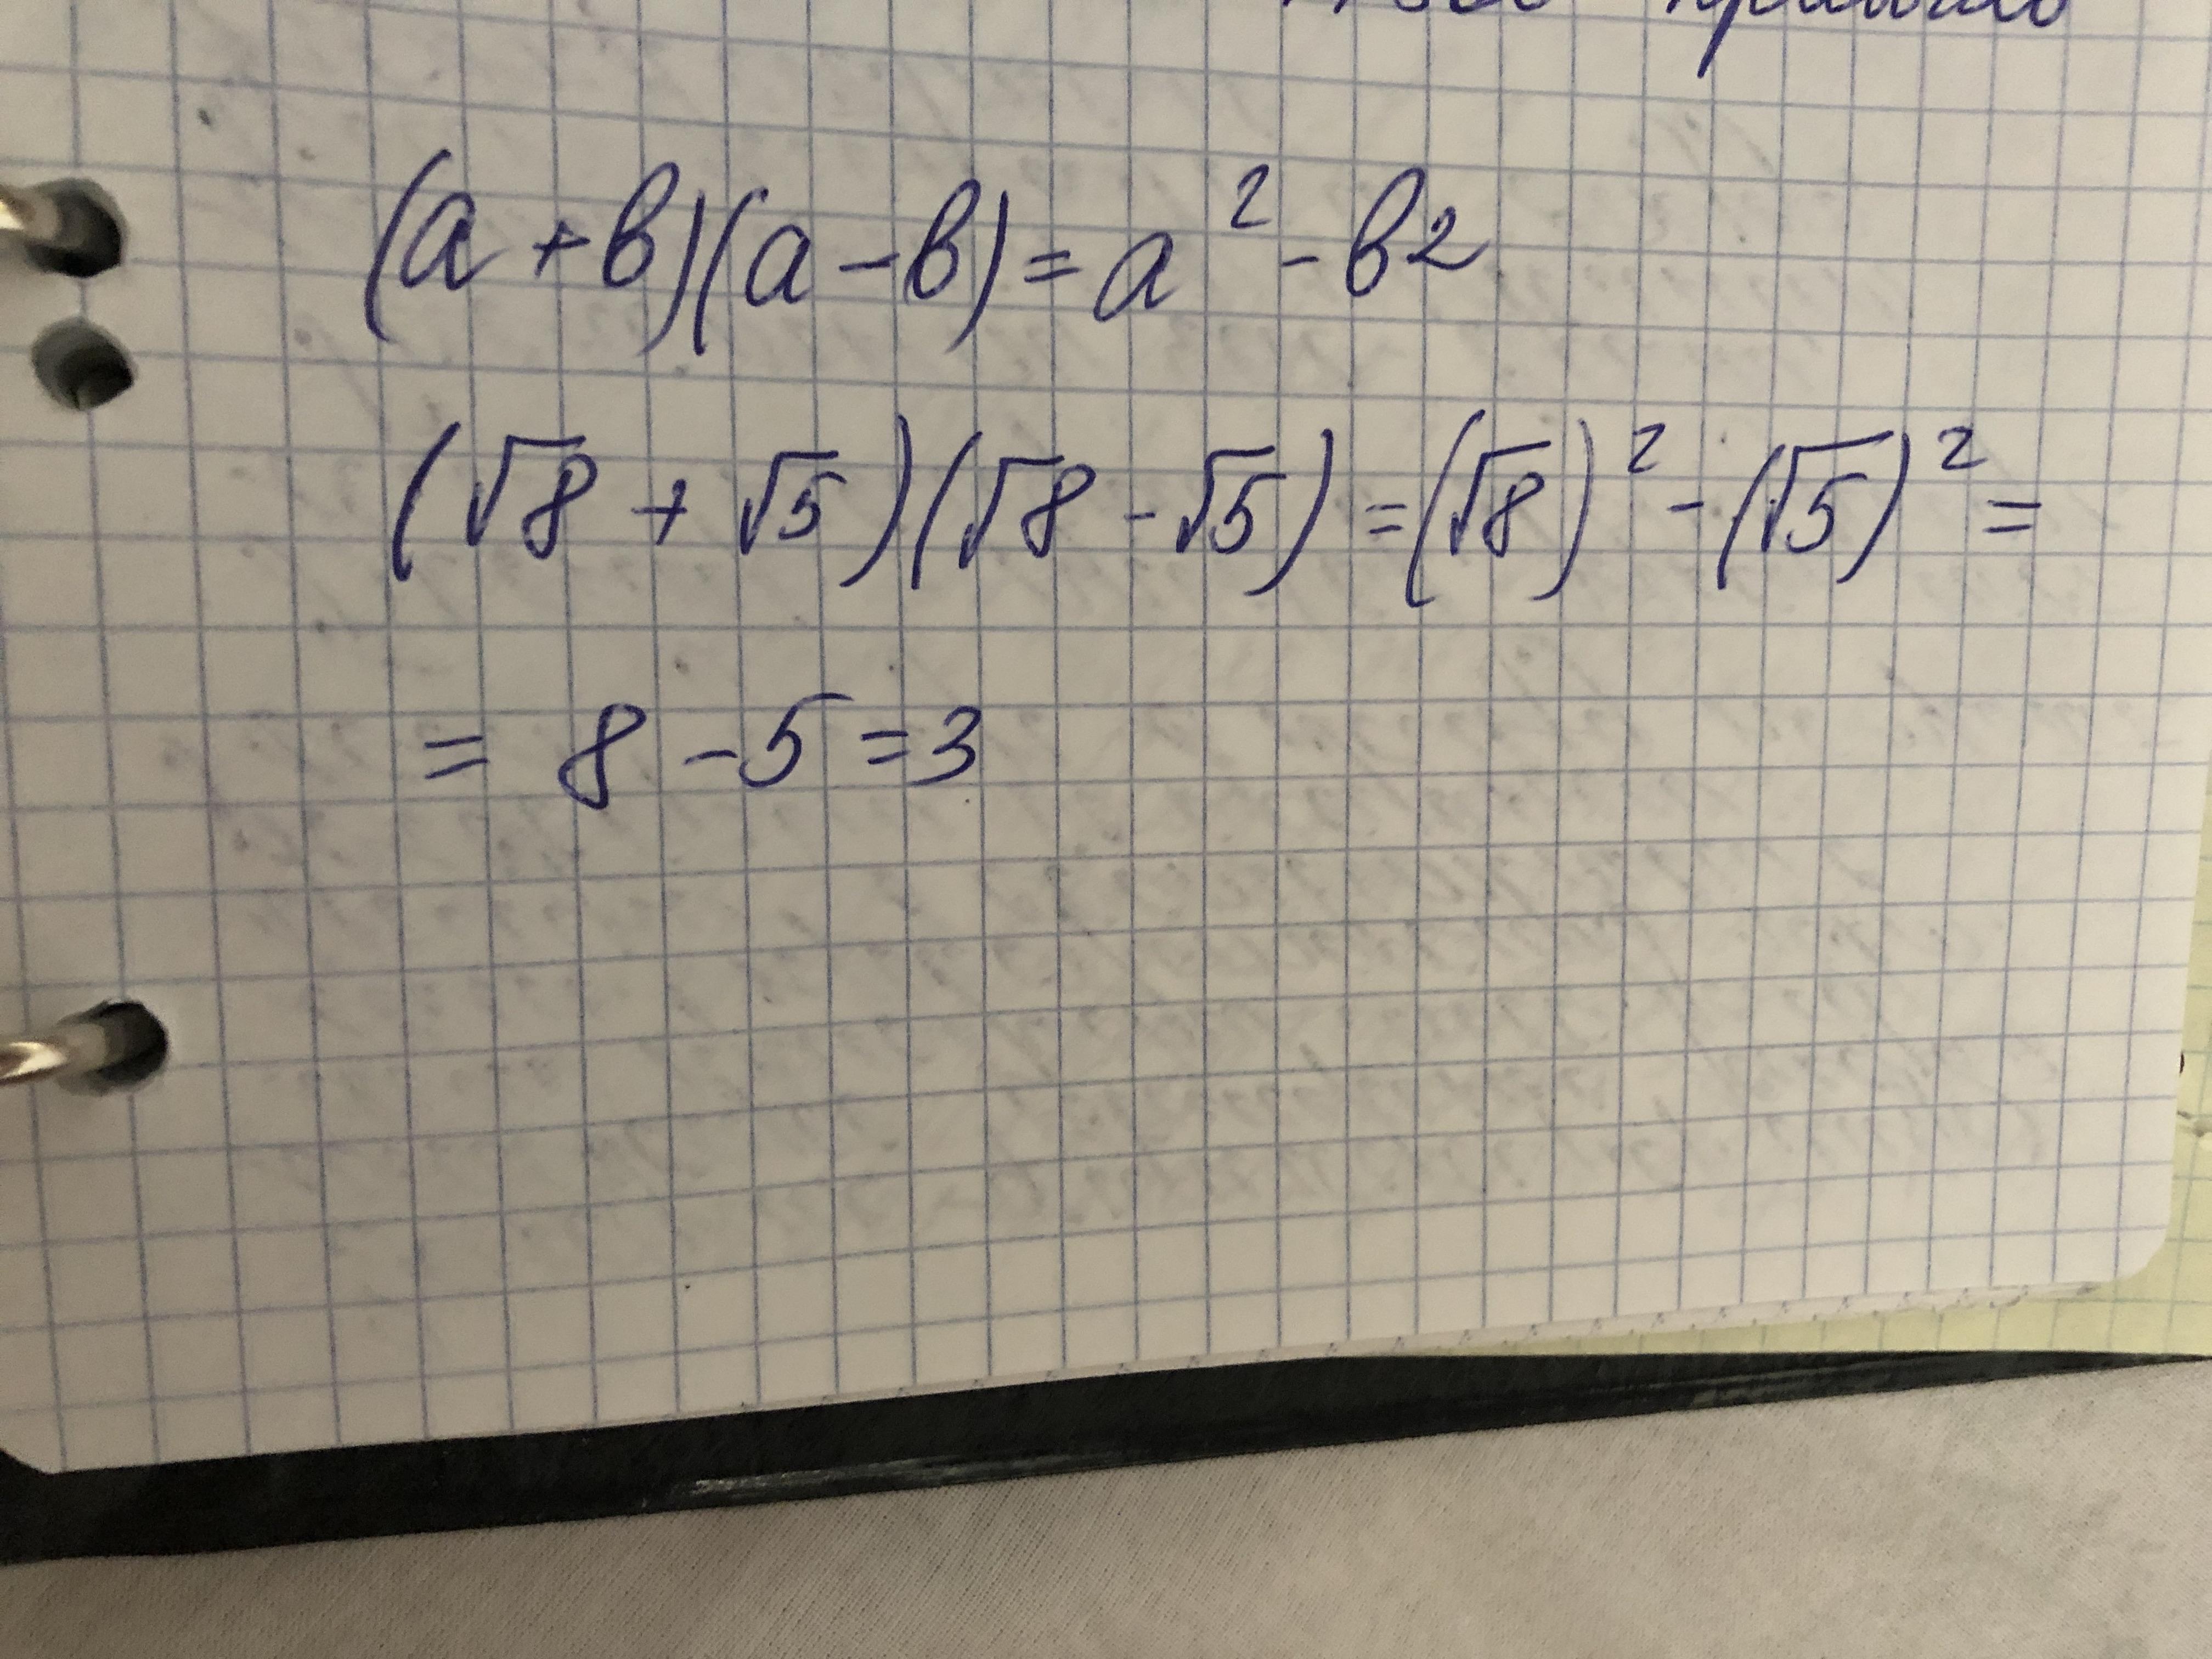 (a + b)(a - b) = a² - b2
(√8 + √5)(√8 - √5) = (√8)² - (√5)² =
= 8 - 5 = 3